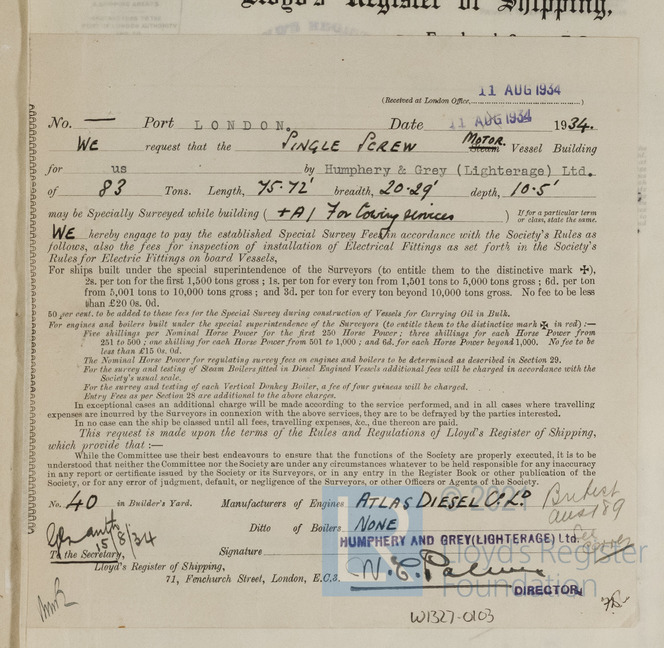 Lloyd's Register of Shipping,
11 AUG 1934
(Received at London Office,..............................)
No. — Port LONDON. Date 11 AUG 1934 1934.
WE request that the SINGLE SCREW MOTOR Steam Vessel Building
for us by Humphery & Grey (Lighterage) Ltd.
of 83 Tons. Length, 75.72' breadth, 20.29' depth, 10.5'
may be Specially Surveyed while building ( +A1 For towing services ) If for a particular term
or class, state the same.
WE hereby engage to pay the established Special Survey Fees in accordance with the Society's Rules as
follows, also the fees for inspection of installation of Electrical Fittings as set forth in the Society's
Rules for Electric Fittings on board Vessels,
For ships built under the special superintendence of the Surveyors (to entitle them to the distinctive mark ✠),
2s. per ton for the first 1,500 tons gross ; 1s. per ton for every ton from 1,501 tons to 5,000 tons gross ; 6d. per ton
from 5,001 tons to 10,000 tons gross ; and 3d. per ton for every ton beyond 10,000 tons gross. No fee to be less
than £20 0s. 0d.
50 per cent. to be added to these fees for the Special Survey during construction of Vessels for Carrying Oil in Bulk.
For engines and boilers built under the special superintendence of the Surveyors (to entitle them to the distinctive mark ✠ in red) :—
Five shillings per Nominal Horse Power for the first 250 Horse Power ; three shillings for each Horse Power from
251 to 500 ; one shilling for each Horse Power from 501 to 1,000 ; and 6d. for each Horse Power beyond 1,000. No fee to be
less than £15 0s. 0d.
The Nominal Horse Power for regulating survey fees on engines and boilers to be determined as described in Section 29.
For the survey and testing of Steam Boilers fitted in Diesel Engined Vessels additional fees will be charged in accordance with the
Society's usual scale.
For the survey and testing of each Vertical Donkey Boiler, a fee of four guineas will be charged.
Entry Fees as per Section 28 are additional to the above charges.
In exceptional cases an additional charge will be made according to the service performed, and in all cases where travelling
expenses are incurred by the Surveyors in connexion with the above services, they are to be defrayed by the parties interested.
In no case can the ship be classed until all fees, travelling expenses, &c., due thereon are paid.
This request is made upon the terms of the Rules and Regulations of Lloyd's Register of Shipping,
which provide that :—
While the Committee use their best endeavours to ensure that the functions of the Society are properly executed, it is to be
understood that neither the Committee nor the Society are under any circumstances whatever to be held responsible for any inaccuracy
in any report or certificate issued by the Society or its Surveyors, or in any entry in the Register Book or other publication of the
Society, or for any error of judgment, default, or negligence of the Surveyors, or other Officers or Agents of the Society.
No. 40 in Builder's Yard. Manufacturers of Engines ATLAS DIESEL Co. LD
Ditto of Boilers NONE
15/8/34
HUMPHERY AND GREY (LIGHTERAGE) Ltd.
To the Secretary, Signature
Lloyd's Register of Shipping,
71, Fenchurch Street, London, E.C.3.
DIRECTOR.
W1327-0103
© 2021
Lloyd's Register
Foundation